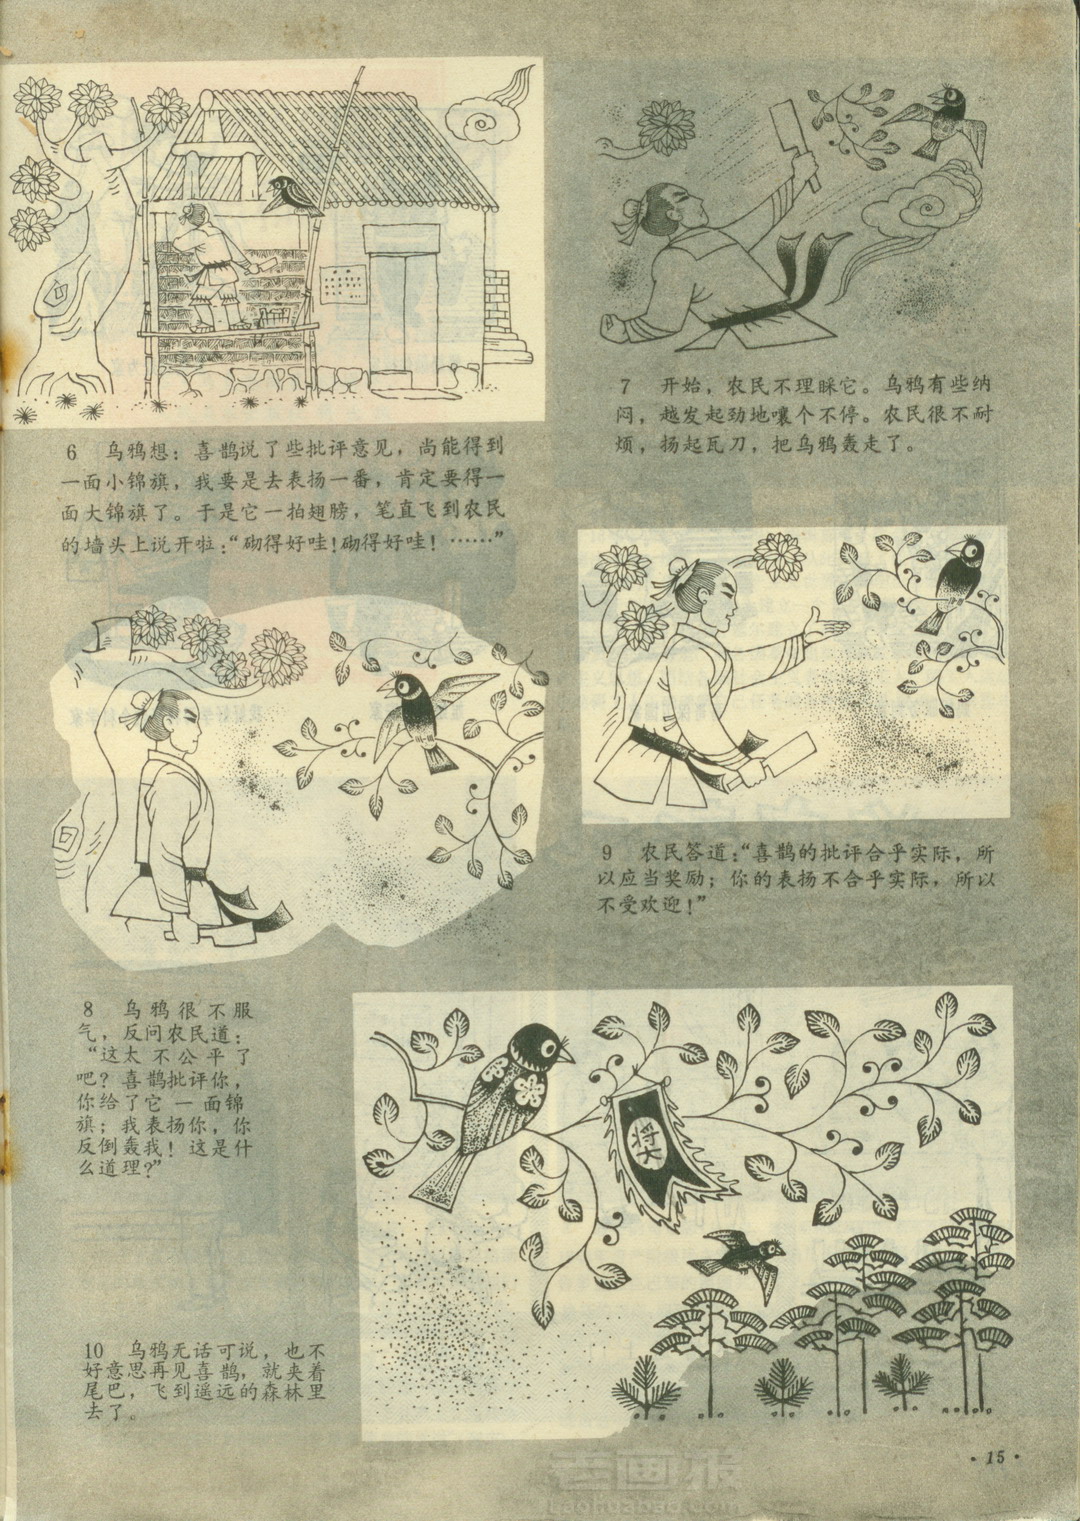 6 乌鸦想：喜鹊说了些批评意见，尚能得到
一面小锦旗，我要是去表扬一番，肯定要得一
面大锦旗了。于是它一拍翅膀，笔直飞到农民
的墙头上说开啦：“砌得好哇！砌得好哇！……”
7 开始，农民不理睬它。乌鸦有些纳
闷，越发起劲地嚷个不停。农民很不耐
烦，扬起瓦刀，把乌鸦轰走了。
8 乌鸦很不服
气，反问农民道：
“这太不公平了
吧？喜鹊批评你，
你给了它一面锦
旗；我表扬你，你
反倒轰我！这是什
么道理？”
9 农民答道：“喜鹊的批评合乎实际，所
以应当奖励；你的表扬不合乎实际，所以
不受欢迎！”
奖
10 乌鸦无话可说，也不
好意思再见喜鹊，就夹着
尾巴，飞到遥远的森林里
去了。
·15·
老画报
laohuabao.com